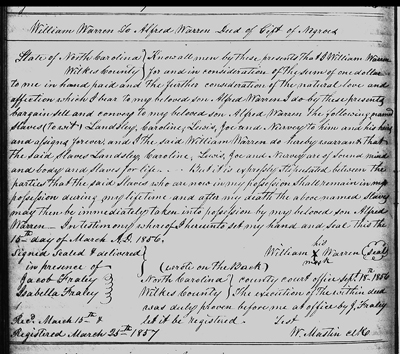 William Warren To Alfred Warren Deed of Gift of Negroes
State of North Carolina } Know all men by these presents that I William Warren
Wilkes County } for and in consideration of the sum of one dollar
to me in hand paid and the further consideration of the natural love and
affection which I bear to my beloved son Alfred Warren I do by these presents
bargain sell and convey to my beloved son Alfred Warren the following named
slaves (to wit) Landsley, Caroline, Lewis, Joe and Nervey to him and his heirs
and assigns forever, and I the said William Warren do hereby warrant that
the said slaves Landsley, Caroline, Lewis, Joe and Nervy are of sound mind
and body and slaves for life. - - But it is expressly stipulated between the
parties that the said slaves who are now in my possession shall remain in my
possession during my lifetime and after my death the above named slaves
may then be immediately taken into possession by my beloved son Alfred
Warren — In testimony whereof I hereunto set my hand and seal this the
15th day of March A.D. 1856.
Signed Sealed & delivered } William his X mark Warren (Seal)
in presence of } (wrote on the Back)
Jacob Fraley } North Carolina } county court office Sept. 18th 1856
Isabella Fraley } Wilkes County } The execution of the within deed
was duly proven before me at office by J. Fraley
Recd. March 15th & let it be registered. Test
Registered March 25th 1857 W. Mastin clk